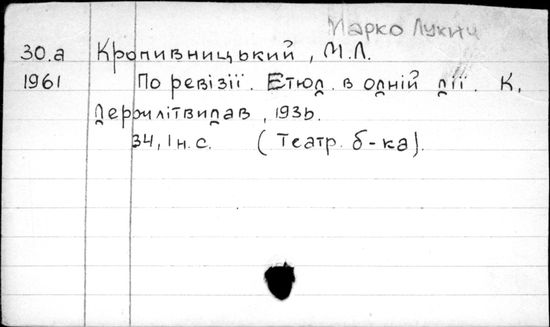 Марко Лукич
30.а Кропивницький, М.Л.
1961 По ревізії. Етюд в одній дії. К.
Держлітвидав, 1936.
34, 1 н. с. (Театр. б-ка).